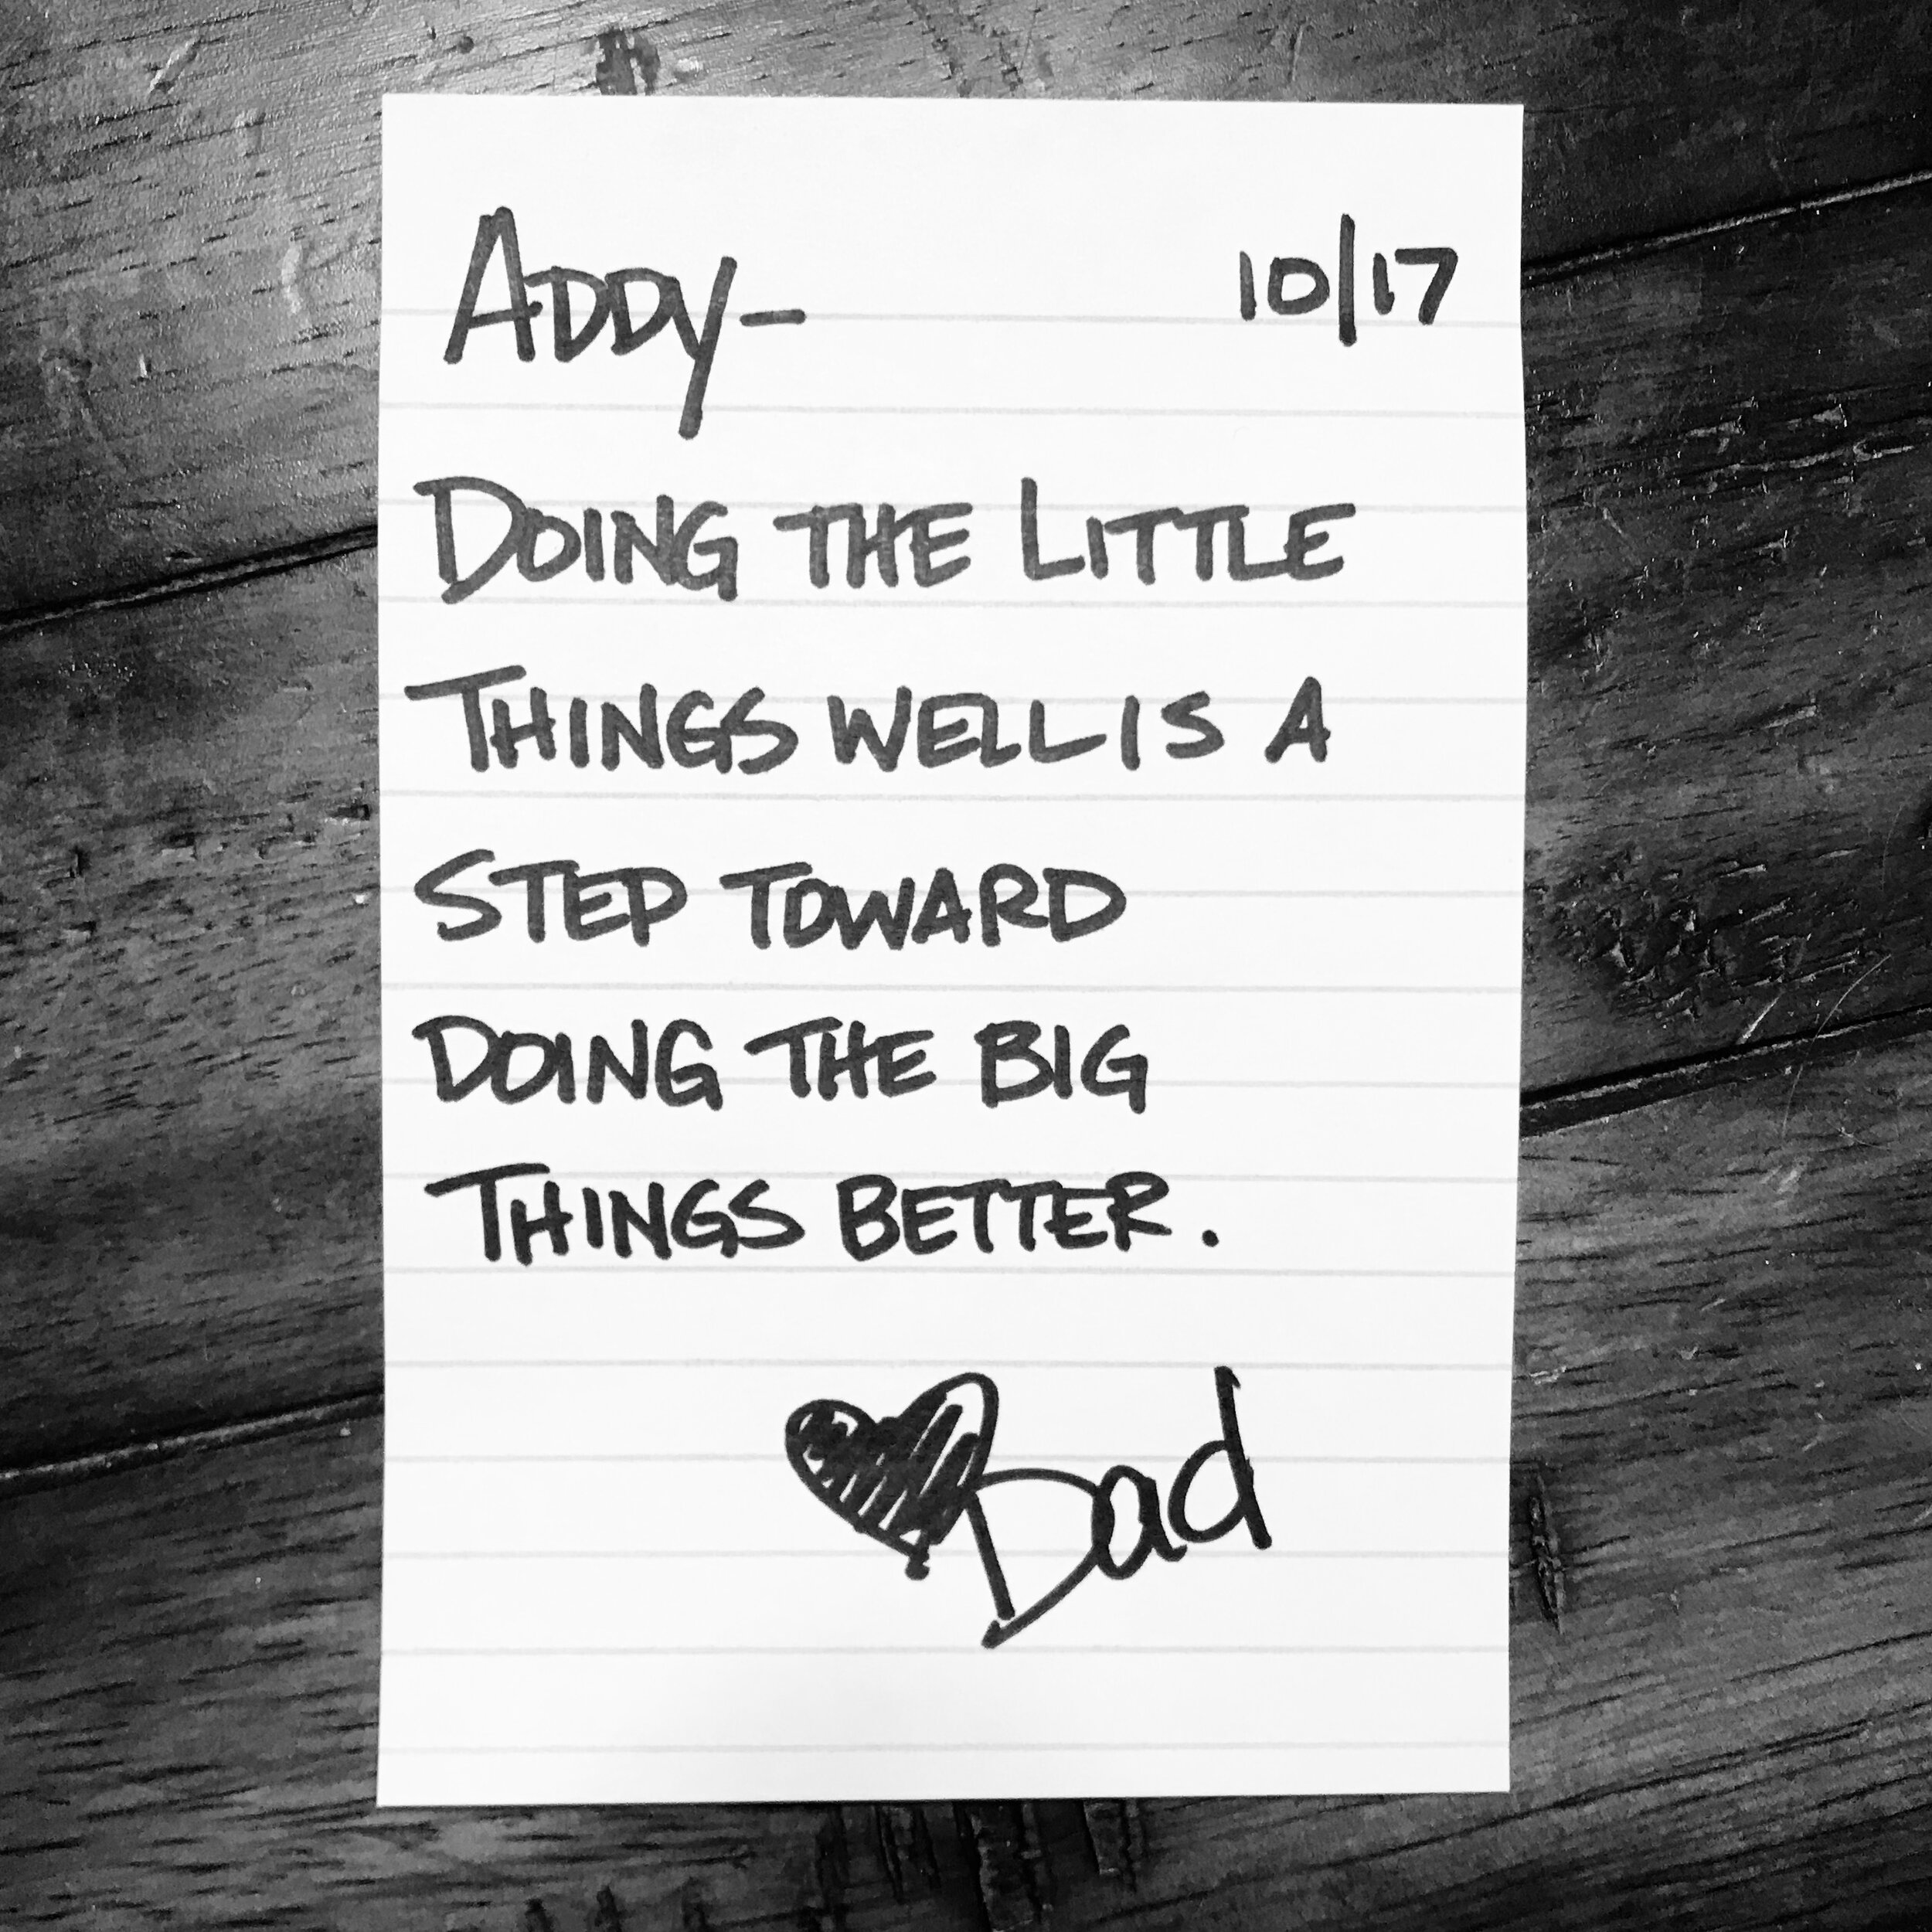 ADDY- 10/17
DOING THE LITTLE
THINGS WELL IS A
STEP TOWARD
DOING THE BIG
THINGS BETTER.
Dad